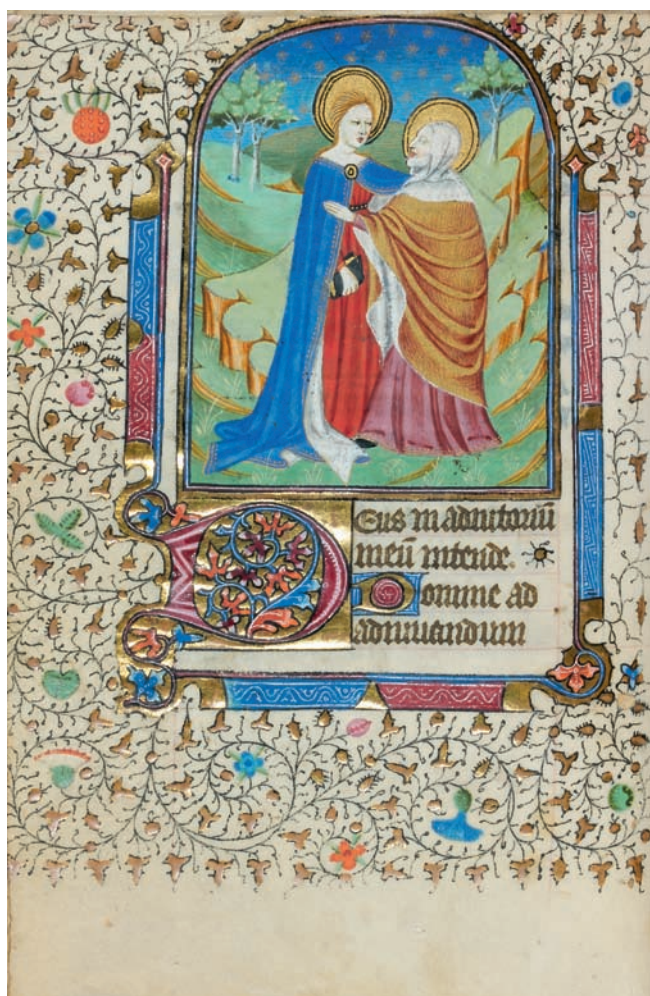 Deus in adiutoriū
meū intende.
Domine ad
adiuuandum